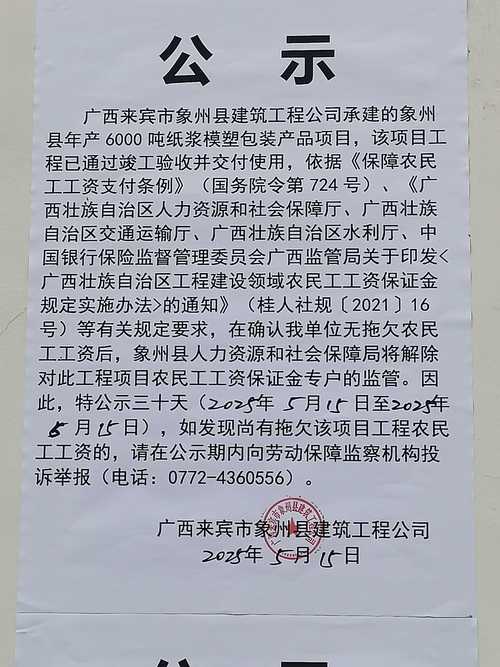 公 示
广西来宾市象州县建筑工程公司承建的象州
县年产6000吨纸浆模塑包装产品项目，该项目工
程已通过竣工验收并交付使用，依据《保障农民
工工资支付条例》（国务院令第724号）、《广
西壮族自治区人力资源和社会保障厅、广西壮族
自治区交通运输厅、广西壮族自治区水利厅、中
国银行保险监督管理委员会广西监管局关于印发<
广西壮族自治区工程建设领域农民工工资保证金
规定实施办法>的通知》（桂人社规〔2021〕16
号）等有关规定要求，在确认我单位无拖欠农民
工工资后，象州县人力资源和社会保障局将解除
对此工程项目农民工工资保证金专户的监管。因
此，特公示三十天（2025年 5月15日至2025年
6月15日），如发现尚有拖欠该项目工程农民
工工资的，请在公示期内向劳动保障监察机构投
诉举报（电话：0772-4360556）。
广西来宾市象州县建筑工程公司
2025年 5月15日
公 示